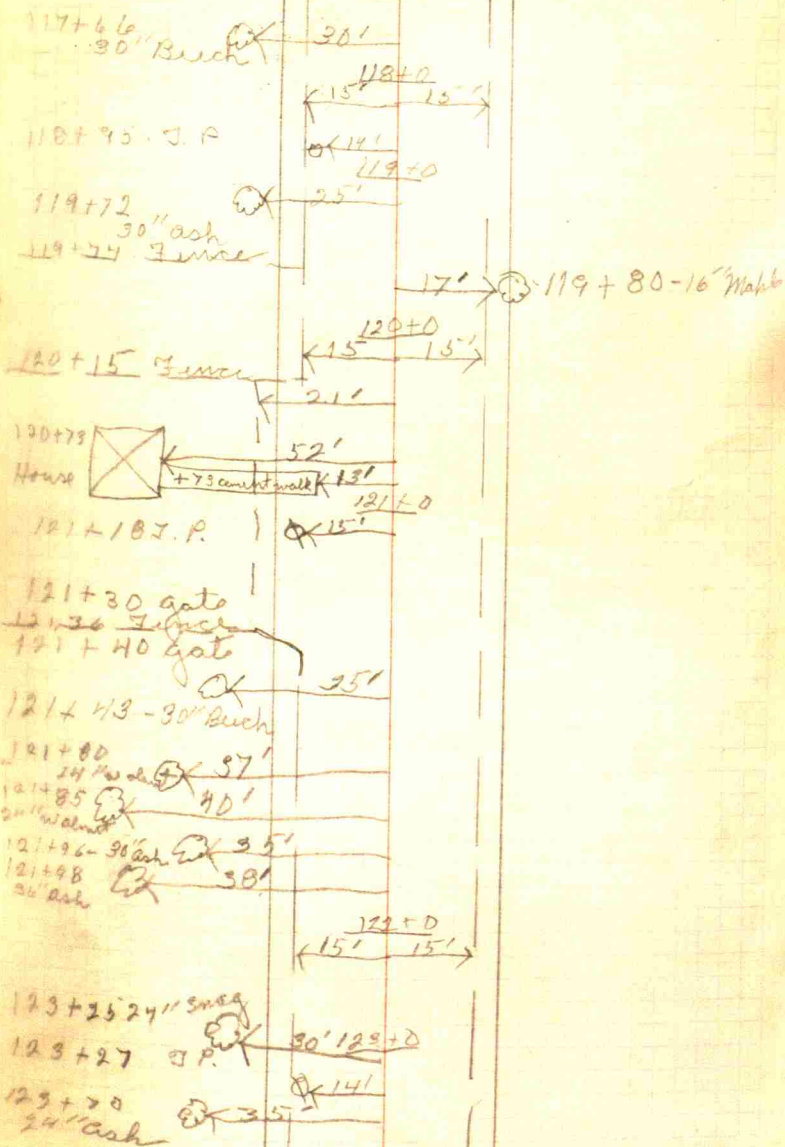 117+66
30" Buch
30'
118+0
15' 15'
118+95 - T. P
14'
119+0
119+72
30" ash
25'
119+74 Fence
17'
119+80-16" Maple
120+0
15 15'
120+15 Fence
21'
120+73
House
52'
+73 cement walk
13'
121+0
121+18 T. P.
15'
121+30 gate
121+36 Fence
121+40 gate
25'
121+43-30" Buch
121+80
24" Walnut
37'
121+85
24" Walnut
40'
121+96-30" ash
35'
121+98
36" ash
38'
122+0
15' 15'
123+25 24" Snag
30'
123+0
123+27 T P.
14'
123+70
24" ash
35'